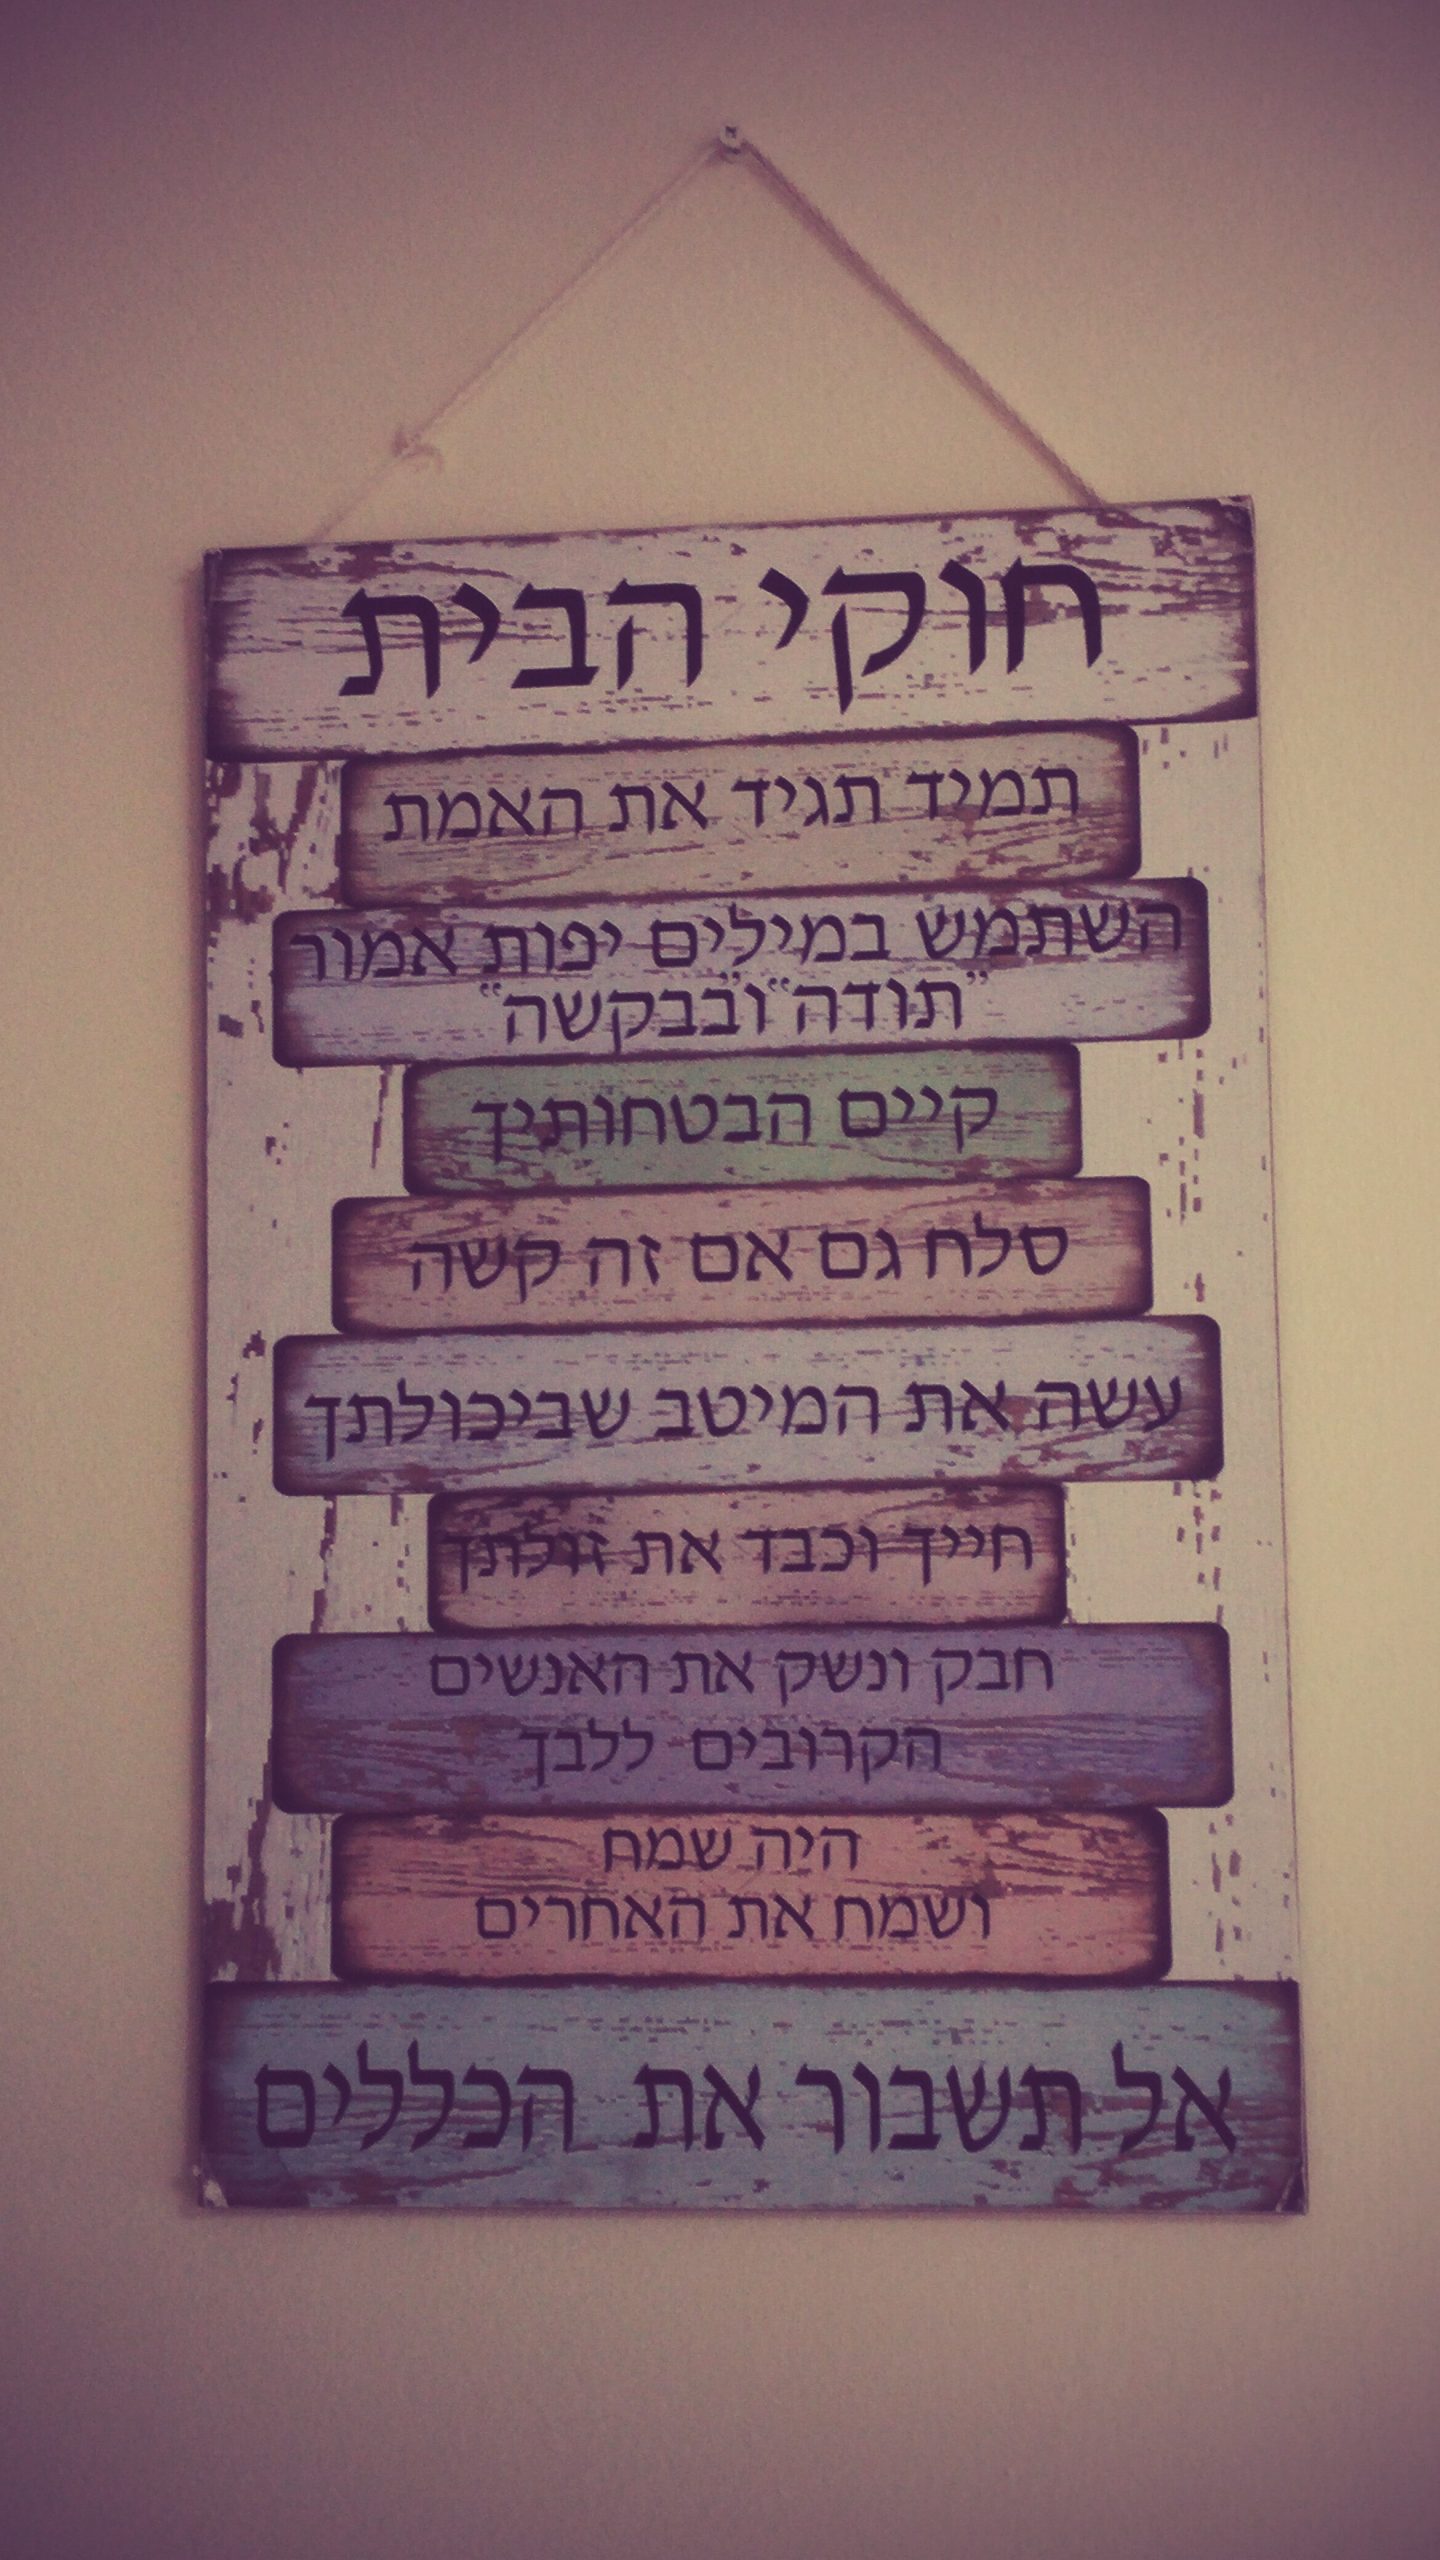 חוקי הבית
תמיד תגיד את האמת
השתמש במילים יפות אמור
”תודה“ו”בבקשה“
קיים הבטחותיך
סלח גם אם זה קשה
עשה את המיטב שביכולתך
חייך וכבד את זולתך
חבק ונשק את האנשים
הקרובים ללבך
היה שמח
ושמח את האחרים
אל תשבור את הכללים